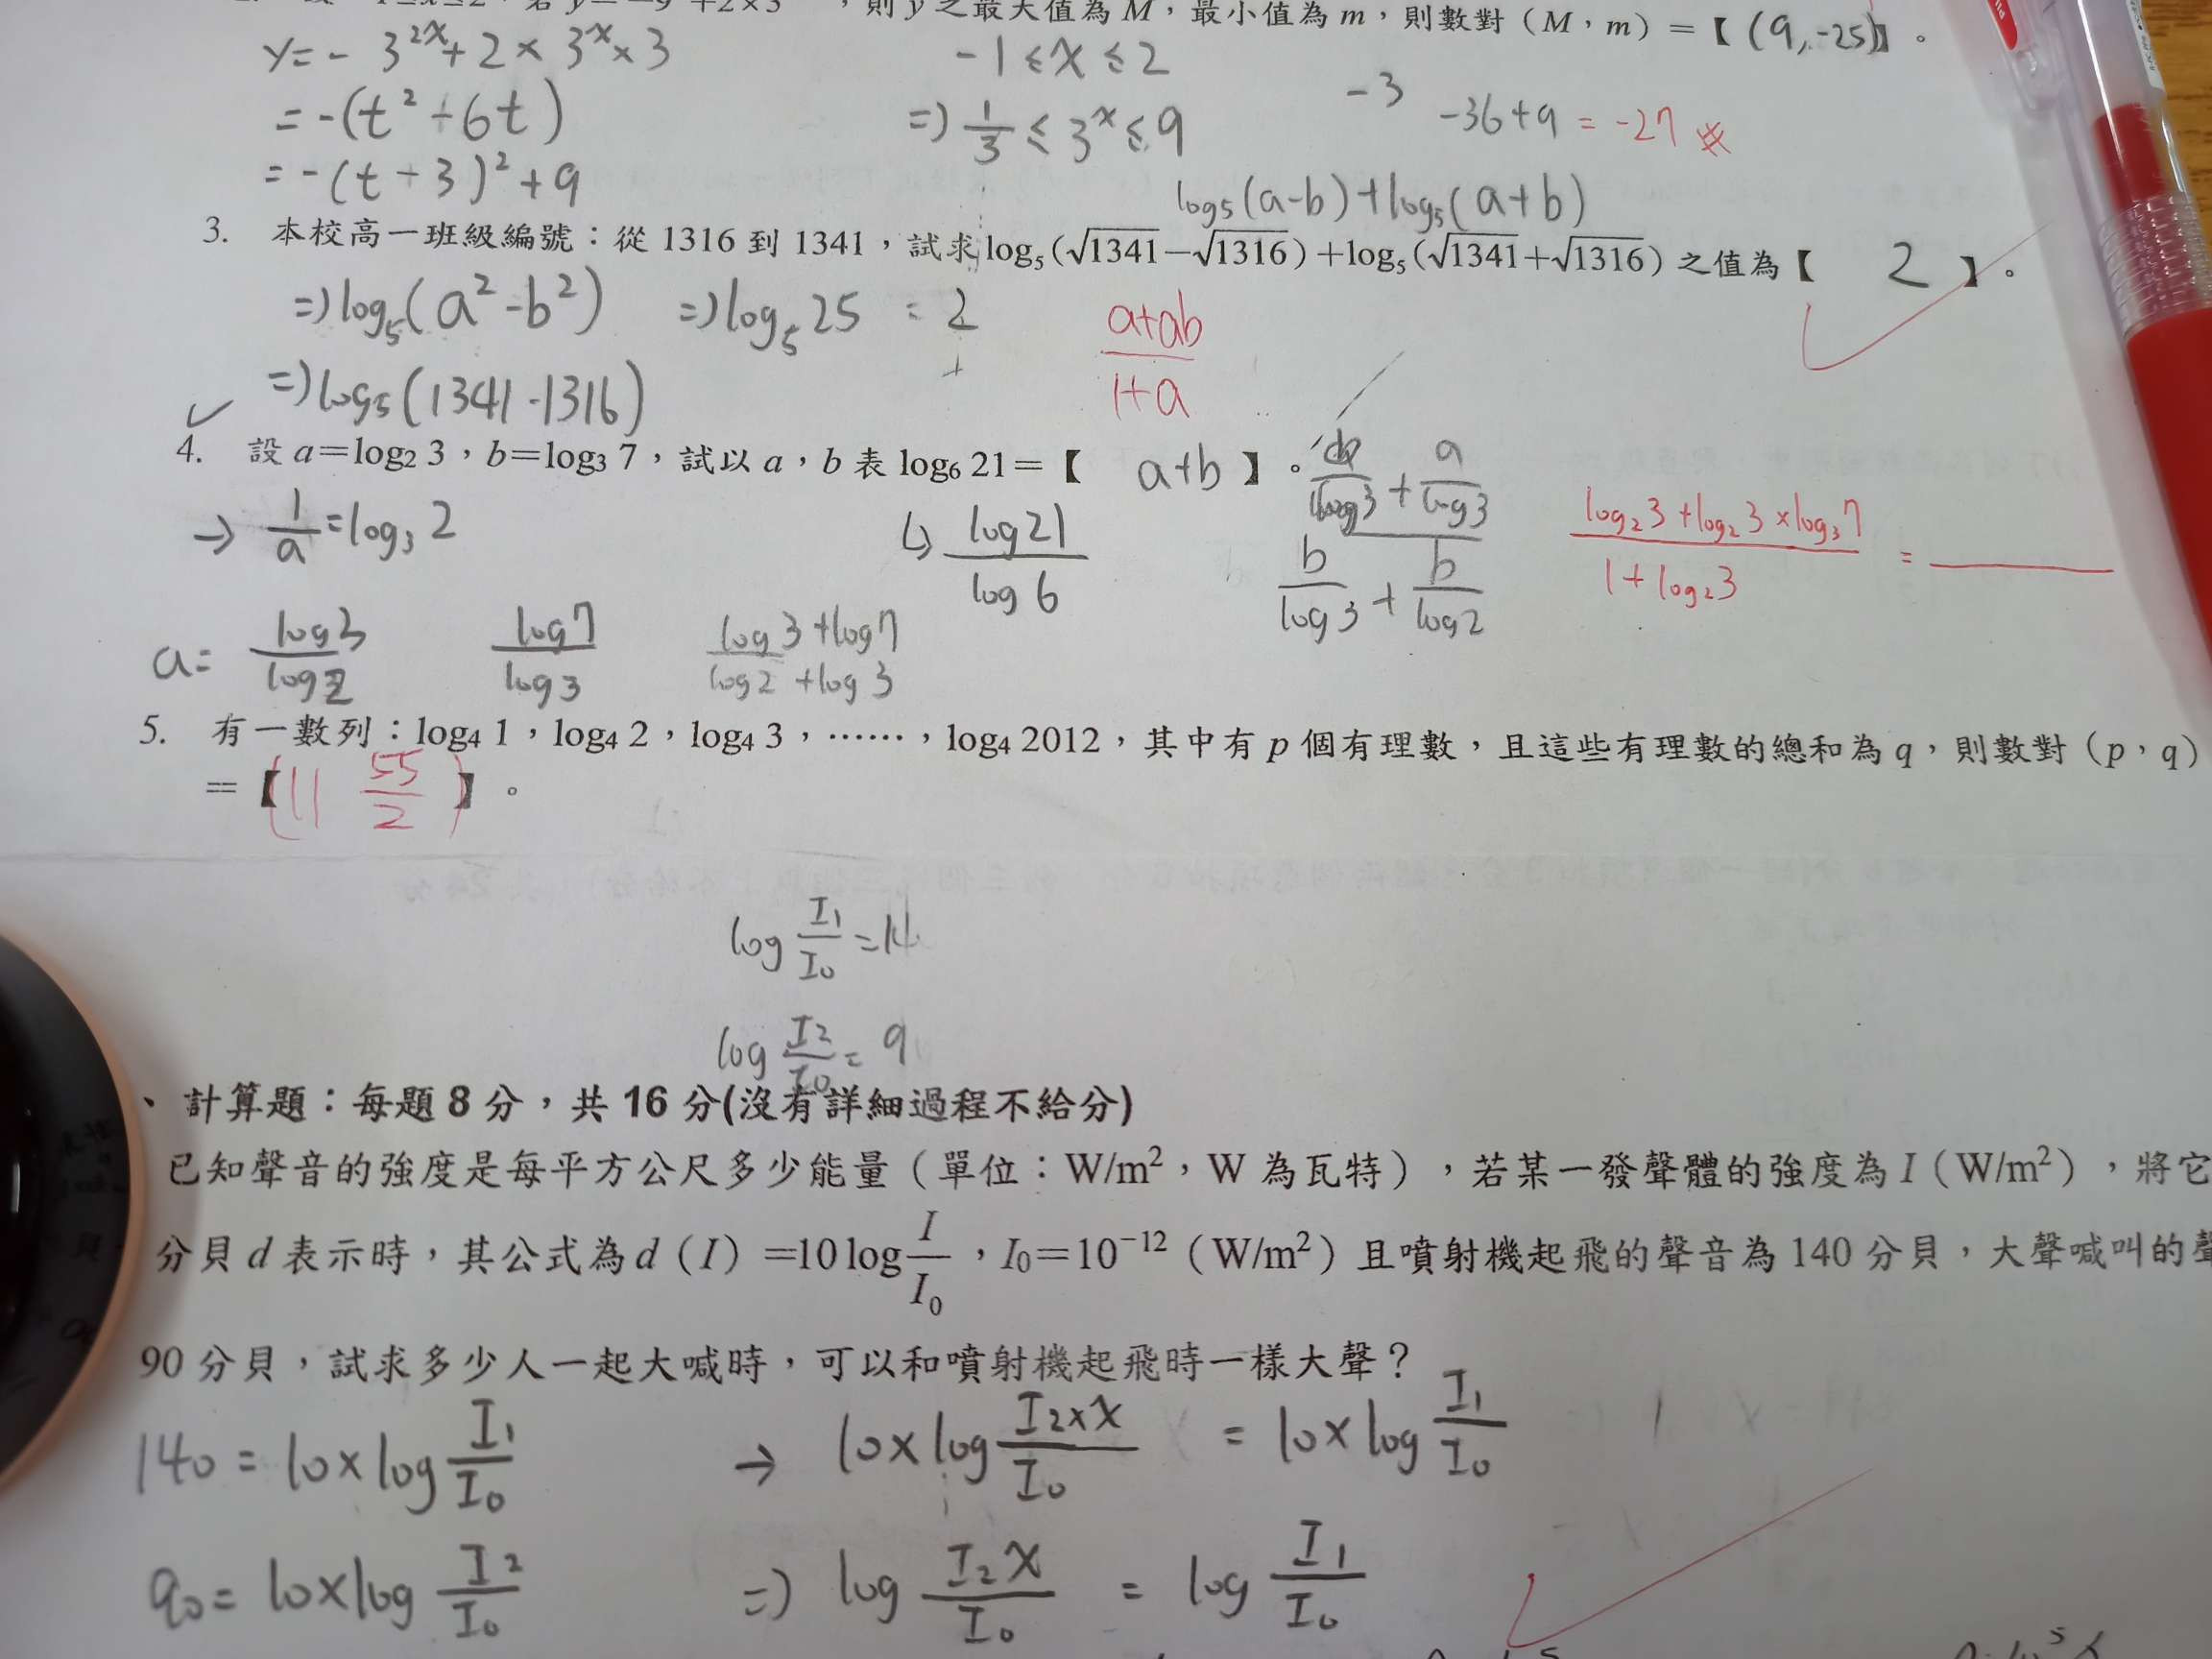 1≤x≤2,若 y=−9 +2×3 ,則 y 之最大值為 M,最小值為 m,則數對(M,m)=【 (9,-25) 】。
y=- 3^{2x}+2×3^x×3
-1≤x≤2
=-(t²-6t)
=> 1/3 ≤ 3^x ≤ 9
-3
-36+9 = -27
=-(t-3)²+9
log₅(a-b)+log₅(a+b)
3. 本校高一班級編號:從 1316 到 1341,試求 log₅(√1341−√1316)+log₅(√1341+√1316)之值為【 2 】。
=> log₅(a²-b²) => log₅25 = 2
(a+ab)/(1+a)
=> log₅(1341-1316)
4. 設 a=log₂ 3,b=log₃ 7,試以 a,b 表 log₆ 21=【 a+b 】。
→ 1/a = log₃ 2
↳ log21/log6
/log3 + a/log3
b/log3 + b/log2
(log₂3+log₂3×log₃7)/(1+log₂3) = 
a= log3/log2
log7/log3
(log3+log7)/(log2+log3)
5. 有一數列:log₄ 1,log₄ 2,log₄ 3,……,log₄ 2012,其中有 p 個有理數,且這些有理數的總和為 q,則數對(p,q)
=【(11 55/2)】。
log I₁/I₀ = 14
log I₂/I₀ = 9
、計算題:每題 8 分,共 16 分(沒有詳細過程不給分)
已知聲音的強度是每平方公尺多少能量(單位:W/m²,W 為瓦特),若某一發聲體的強度為 I(W/m²),將它
分貝 d 表示時,其公式為 d(I)=10 log I/I₀,I₀=10⁻¹²(W/m²)且噴射機起飛的聲音為 140 分貝,大聲喊叫的聲
90 分貝,試求多少人一起大喊時,可以和噴射機起飛時一樣大聲?
140 = 10×log I₁/I₀ → 10×log I₂×x/I₀ = 10×log I₁/I₀
90 = 10×log I₂/I₀ => log I₂x/I₀ = log I₁/I₀